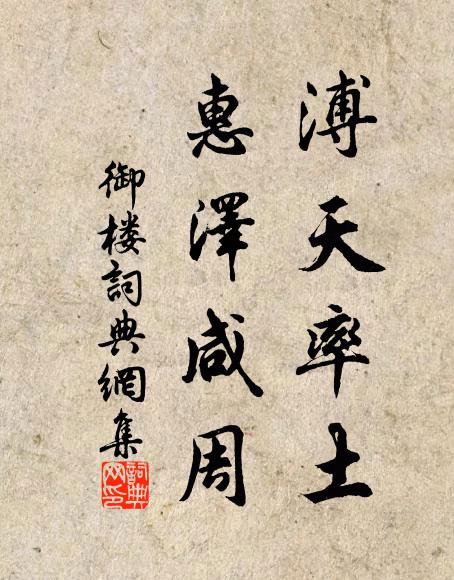 溥天率土
惠澤咸周
御楼詞典網集
詞典網印